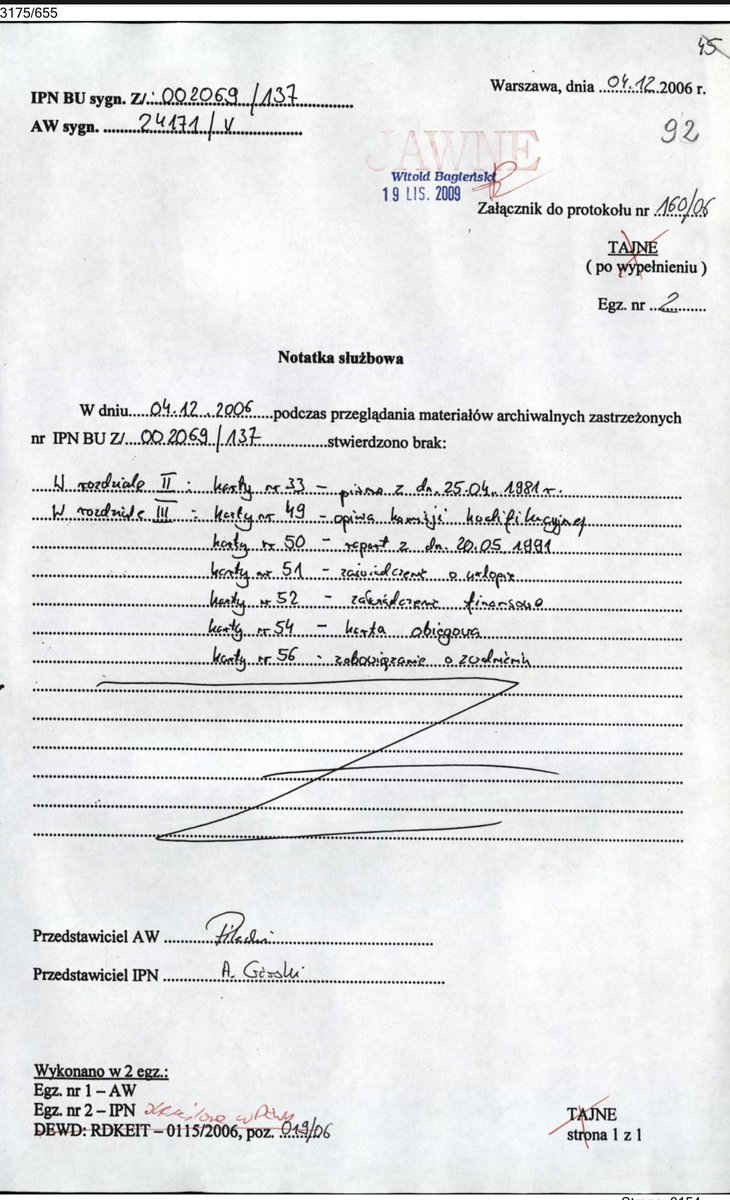 3175/655
45
IPN BU sygn. Z/.002069/137
Warszawa, dnia 04.12.2006 r.
AW sygn. 24171/V
92
JAWNE
Witold Bagieński
19 LIS. 2009
Załącznik do protokołu nr 160/06
TAJNE
( po wypełnieniu )
Egz. nr 2
Notatka służbowa
W dniu 04.12.2006 podczas przeglądania materiałów archiwalnych zastrzeżonych
nr IPN BU Z/ 002069/137 stwierdzono brak:
W rozdziale II : karty nr 33 – pismo z dn. 25.04.1981 r.
W rozdziale III : karty nr 49 – opinia komisji kodifikacyjnej
karty nr 50 – raport z dn. 20.05.1991
karty nr 51 – zaświadczenie o urlopie
karty nr 52 – zaświadczenie finansowe
karty nr 54 – karta obiegowa
karty nr 56 - zobowiązanie o zwolnieniu
Przedstawiciel AW
Przedstawiciel IPN A. Górski
Wykonano w 2 egz.:
Egz. nr 1 – AW
Egz. nr 2 – IPN
DEWD: RDKEIT – 0115/2006, poz. 019/06
TAJNE
strona 1 z 1